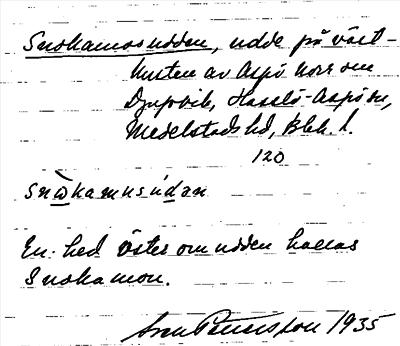 Snokamosudden, udde på väst-
kusten av Aspö norr om
Djupvik, Hasslö-Aspö sn,
Medelstads hd, Blek. l.
120
snωkamusúdan
En hed öster om udden kallas
Snokamon.
Sven Petersson 1935